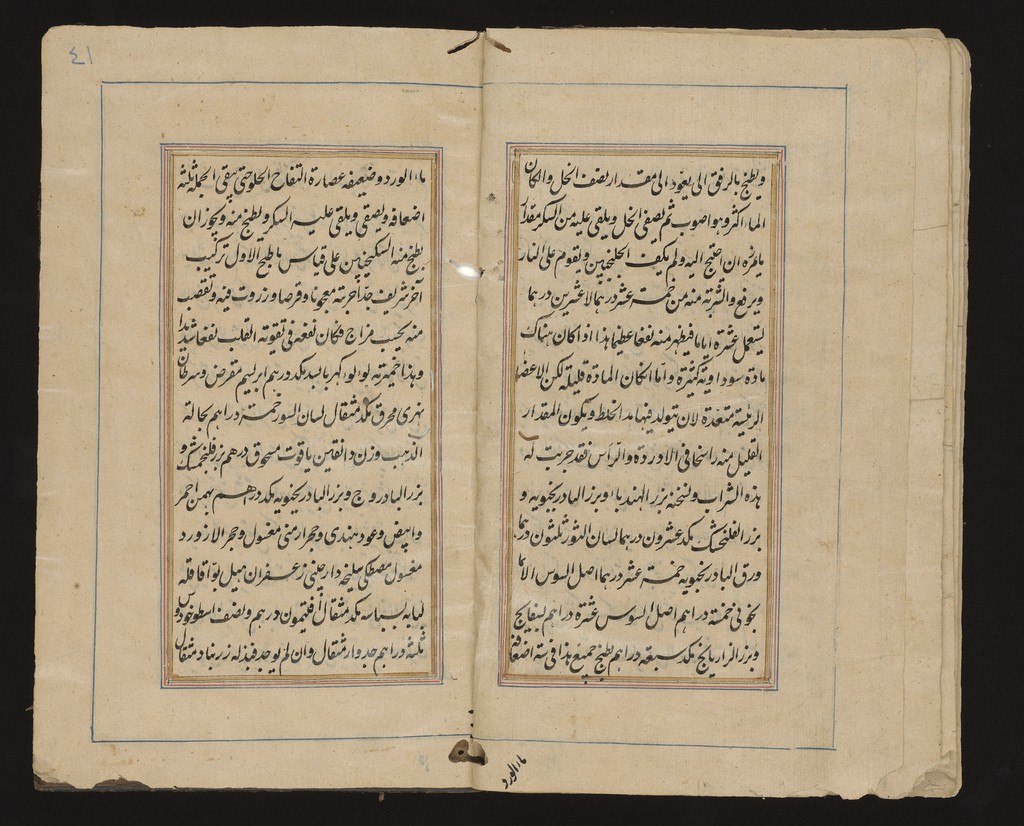 ويطبخ بالرفق الى يعود الى مقدار نصف الخل وان كان
الماء اكثر وهو اصوب ثم يصفى الخل ويلقى عليه من السكر مقدار
ما يغره ان احتيج اليه ولم يكف الخلنجبين ويقوم على النار
ويرفع والشربة منه من خمسة عشر درهما الا عشرين درهما
يستعمل عشرة اياما فيظهر منه نفعا عظيما هذا اذا كان هناك
مادة سوداوية كثيرة واما ان كان المادة قليلة لكن الاعضاء
الرئيسة متعدة لان يتولد فيها مد الخلط ويكون المقدار
القليل منه راسخا فى الاوردة والرأس فقد جربت له
هذه الشراب ونسخته بزر الهندباء وبزر البادرنجبويه و
بزر الفلنجمشك مكد عشرون درهما لسان الثور ثلثون درهما
ورق البادرنجبويه خمسة عشر درهما اصل السوس الاسما
نجونى خمسة دراهم اصل السوس عشرة دراهم بسفايج
وبزر الرازيانج مكد سبعة دراهم يطبخ جميع هذا فى ستة اضعافه
ماء الورد
٤١
ماء الورد وضعيفه عصارة التفاح الحلو حتى يبقى الجملة ثلثة
اضعافه ويصفى ويلقى عليه السكر ويطبخ منه ويجوز ان
يطبخ منه السكنجبين على قياس ما طبخ الاول تركيب
آخر شريف جدا جربته معجونا وقرصا وزروت فيه ونقصت
منه بحسب مزاج فكان نفعه فى تقوية القلب نفعا شديدا
وهذا خميرته لولو كهربا بسد مكد درهم ابريسم مقرض وسرطان
نهرى محرق مكد مثقال لسان الثور خمسة دراهم نخالة
الذهب وزن دانقين ياقوت مسحوق درهم بزر فلنجمشك و
بزر البادروج وبزر البادرنجبويه مكد درهم بهمن احمر
وابيض وعود هندى وحجر ارمنى مغسول وحجر لازورد
مغسول مصطكى سليخه دارچينى زعفران هيل بوا قاقله
كبابه بسباسه مكد مثقال افتيمون درهم ونصف اسطوخودوس
ثلثة دراهم جدوار مثقال وان لم يوجد فبدله زرنباد مثقال